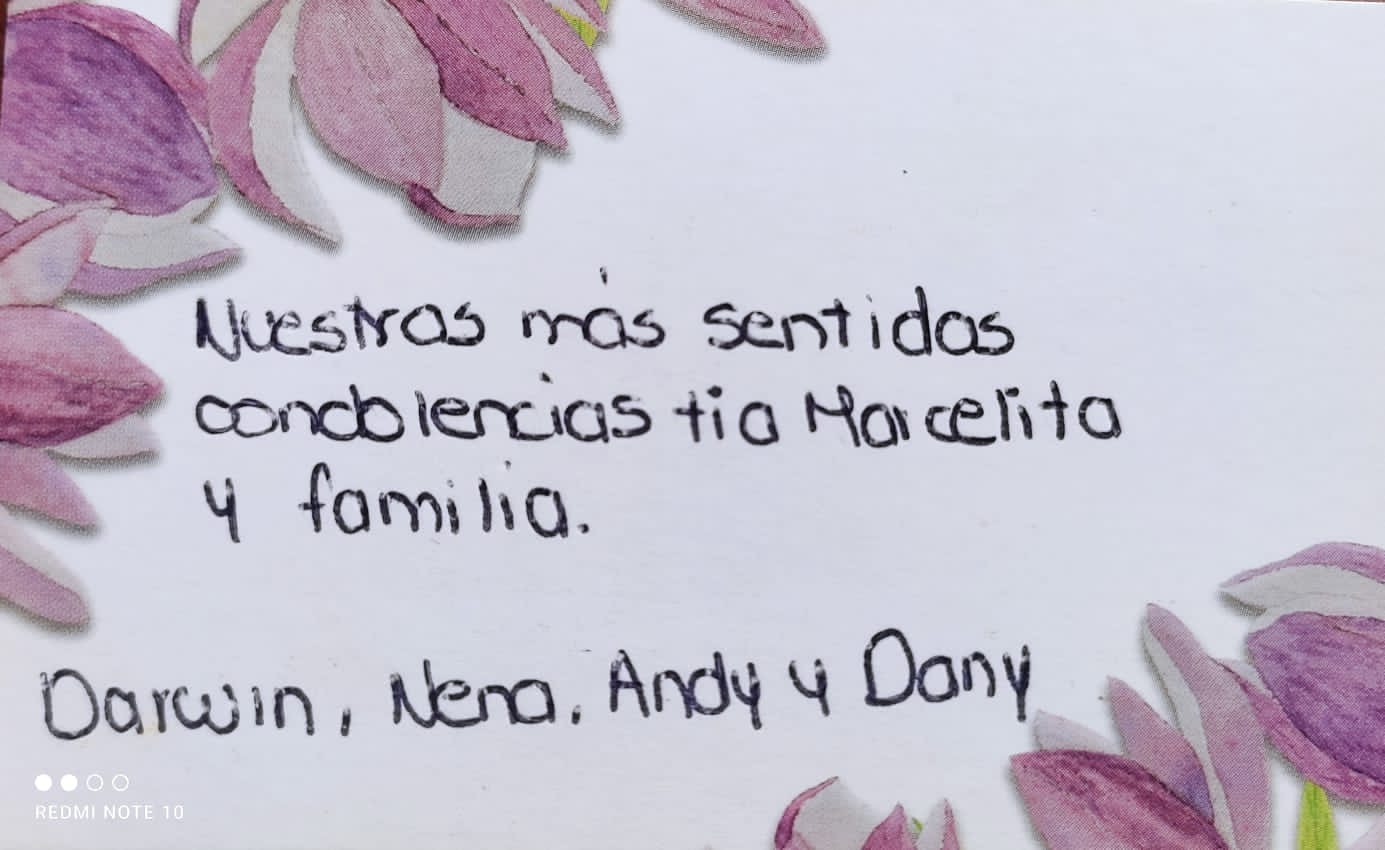 Nuestras más sentidas
condolencias tia Marcelita
y familia.
Darwin, Nena, Andy y Dany
REDMI NOTE 10